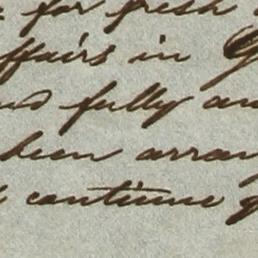 for fresh
ffairs in G
nd fully an
been arran
continue